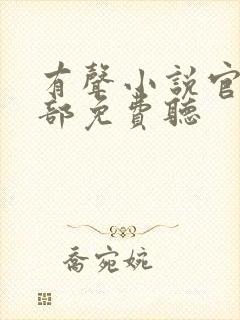 有聲小說官
部免費聽
喬宛婉